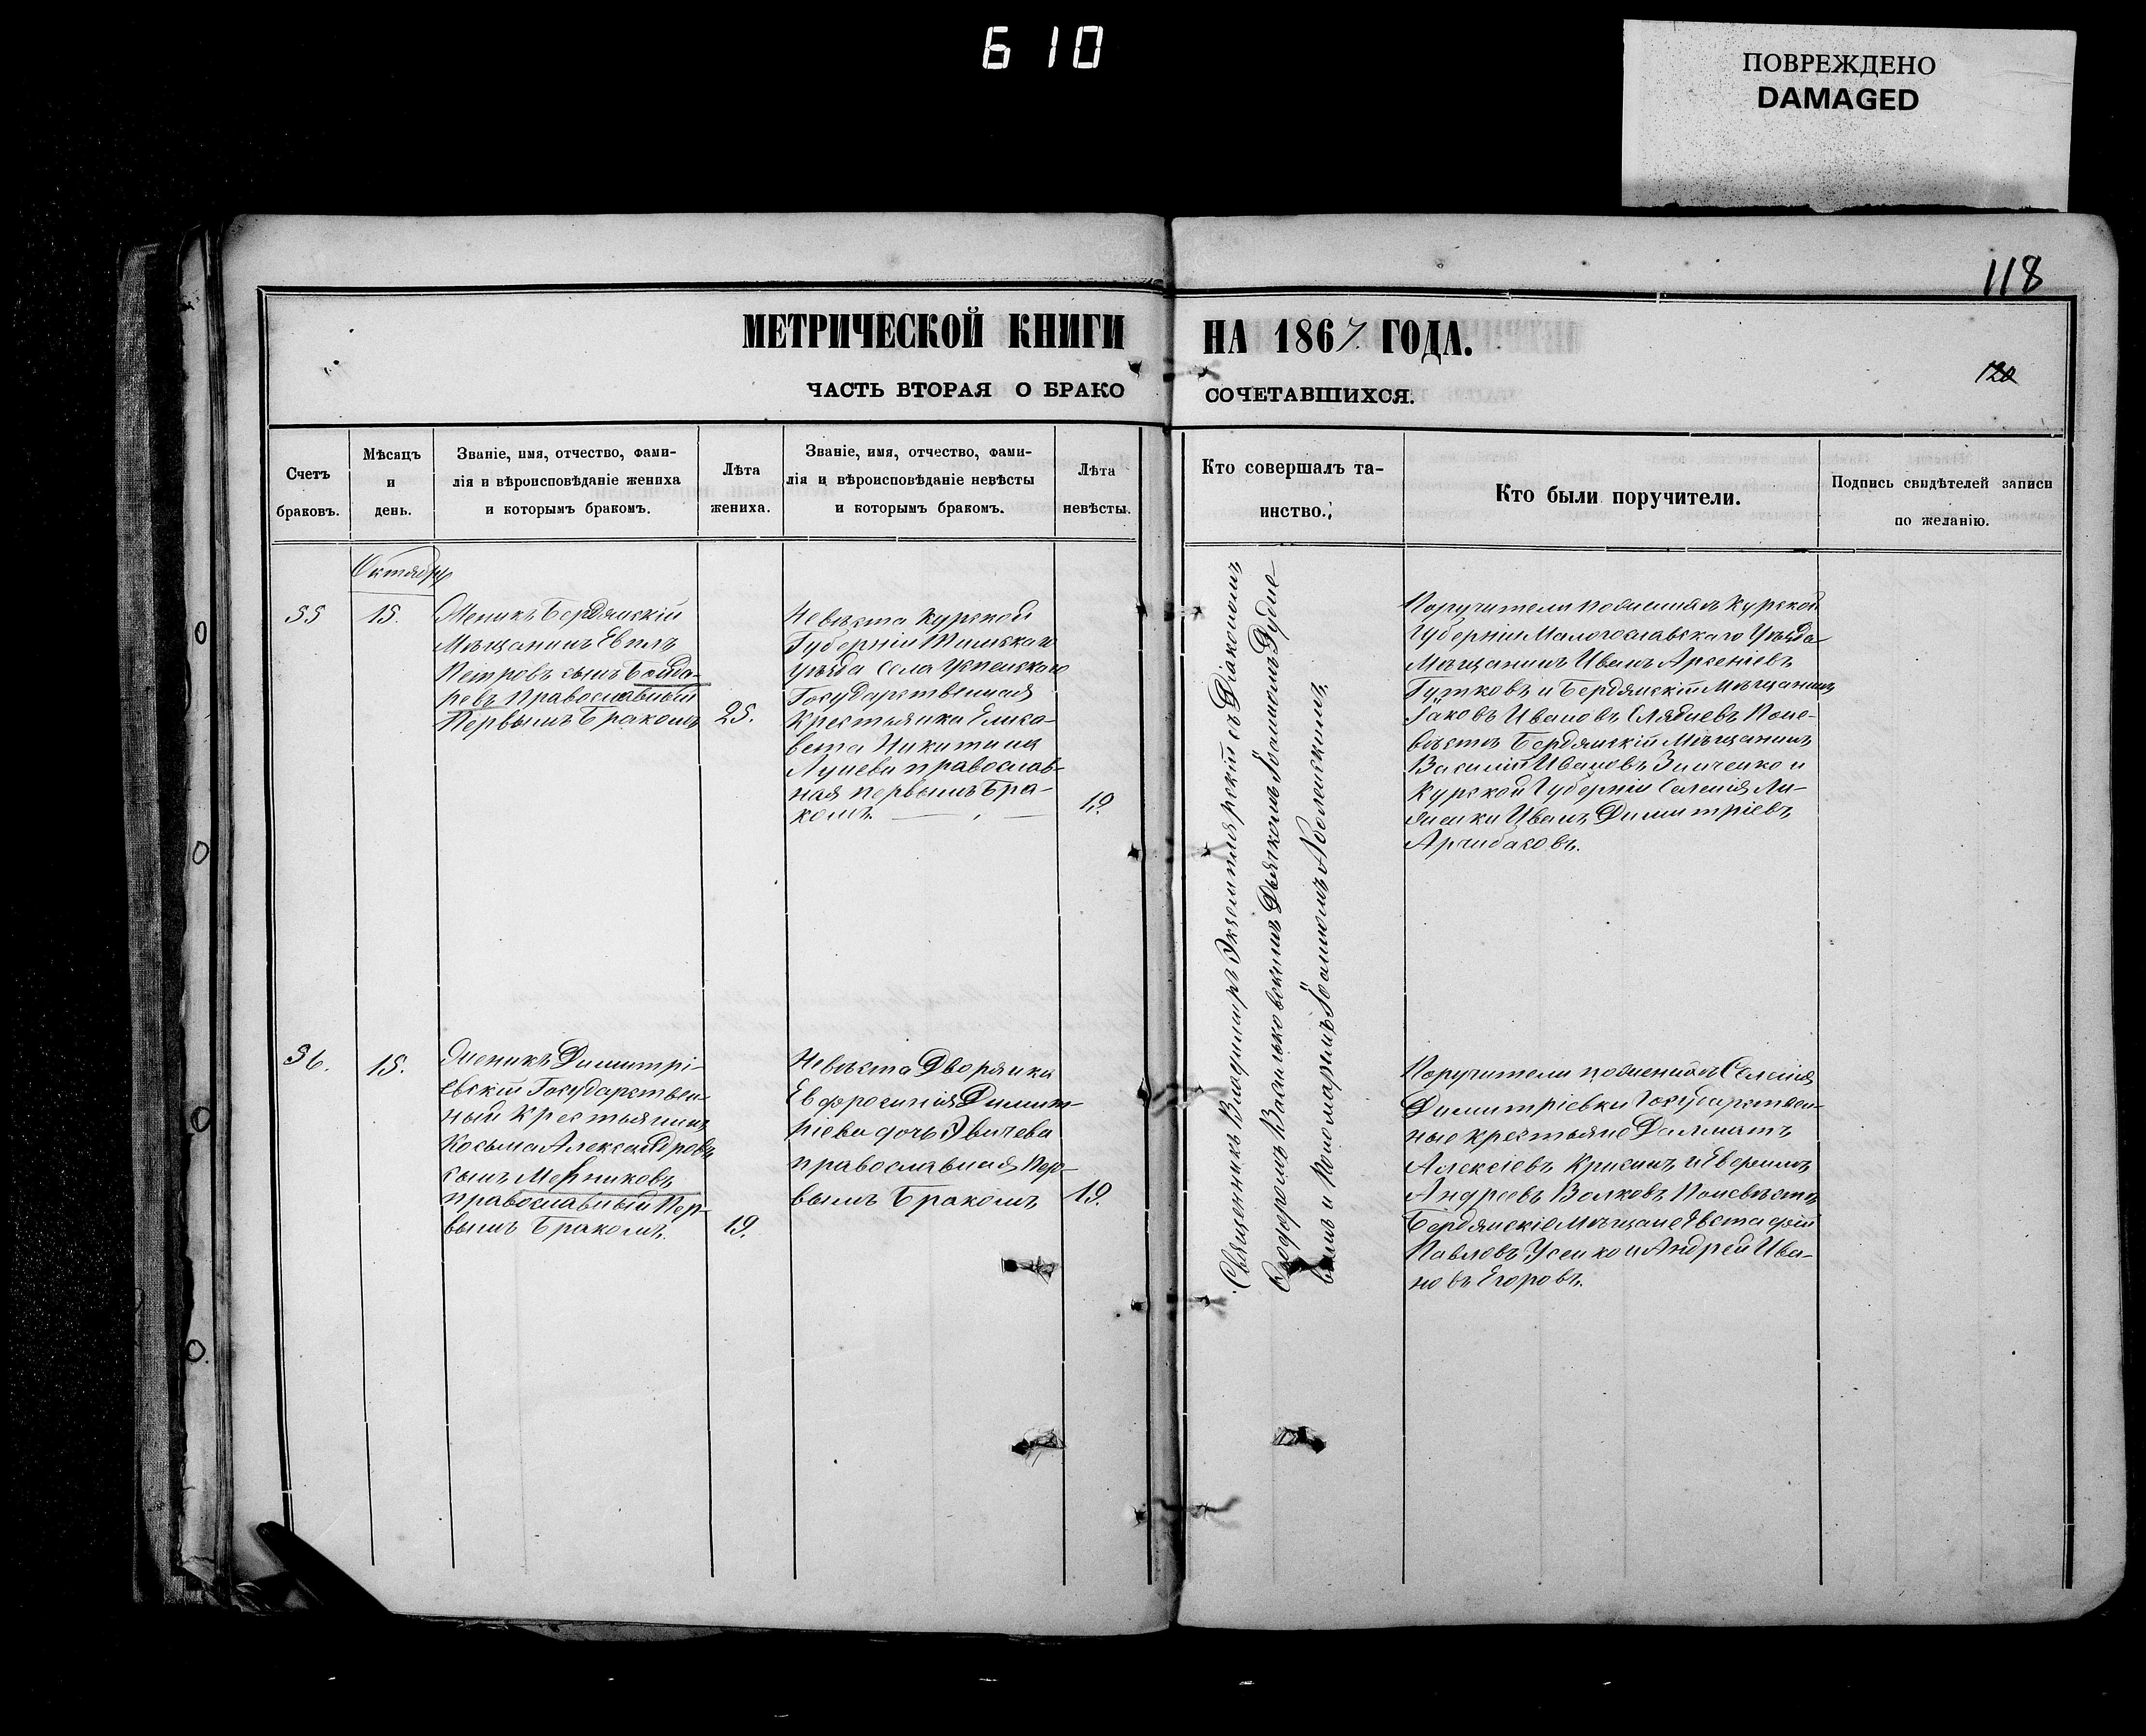 610
ПОВРЕЖДЕНО
DAMAGED
118
МЕТРИЧЕСКОЙ КНИГИ НА 1867 ГОДА.
120
ЧАСТЬ ВТОРАЯ О БРАКО СОЧЕТАВШИХСЯ.
Счетъ
браковъ.
Мѣсяцъ
и
день.
Званіе, имя, отчество, фами-
лія и вѣроисповѣданіе жениха
и которымъ бракомъ.
Лѣта
жениха.
Званіе, имя, отчество, фами-
лія и вѣроисповѣданіе невѣсты
и которымъ бракомъ.
Лѣта
невѣсты.
Кто совершалъ та-
инство.
Кто были поручители.
Подпись свидѣтелей записи
по желанію.
Октябрь
55
15.
Женихъ Бердянскій
Мѣщанинъ Евплъ
Петровъ сынъ Бонда-
ревъ Православный
Первымъ Бракомъ
25.
Невѣста Курской
Губерніи Тимскаго
уѣзда села Успенскаго
Государственная
Крестьянка Елиса-
вета Никитина
Лунева православ-
ная первымъ Бра-
комъ.
19.
Священникъ Владимиръ съ Діакономъ
Ѳеодоромъ Васильковскимъ Дьячкомъ Іоанномъ Рудне-
вымъ и Пономаремъ Іоанномъ
Поручители по женихѣ Курской
Губерніи Уѣзда
Мѣщанинъ Иванъ Арсеніевъ
Гутковъ и Бердянскій Мѣщанинъ
Іаковъ Ивановъ По не-
вѣстѣ Бердянскій Мѣщанинъ
Василій Ивановъ Зинченко и
Курской Губерніи Селенія Ли-
Иванъ Димитріевъ
56.
15.
Женихъ Димитрі-
евскій Государствен-
ный Крестьянинъ
Косьма Александровъ
сынъ Мерниковъ
православный Пер-
вымъ Бракомъ.
19.
Невѣста Дворянка
Евфросинія Димит-
ріева дочь Звичева
православная Пер-
вымъ Бракомъ
19.
Поручители по женихѣ Селенія
Димитріевки Государствен-
ные крестьяне Далматъ
Алексіевъ и Ефимъ
Андреевъ Волковъ По невѣстѣ
Бердянскіе Мѣщане Евстафій
Павловъ Усенко и Андрей Ива-
новъ Егоровъ.